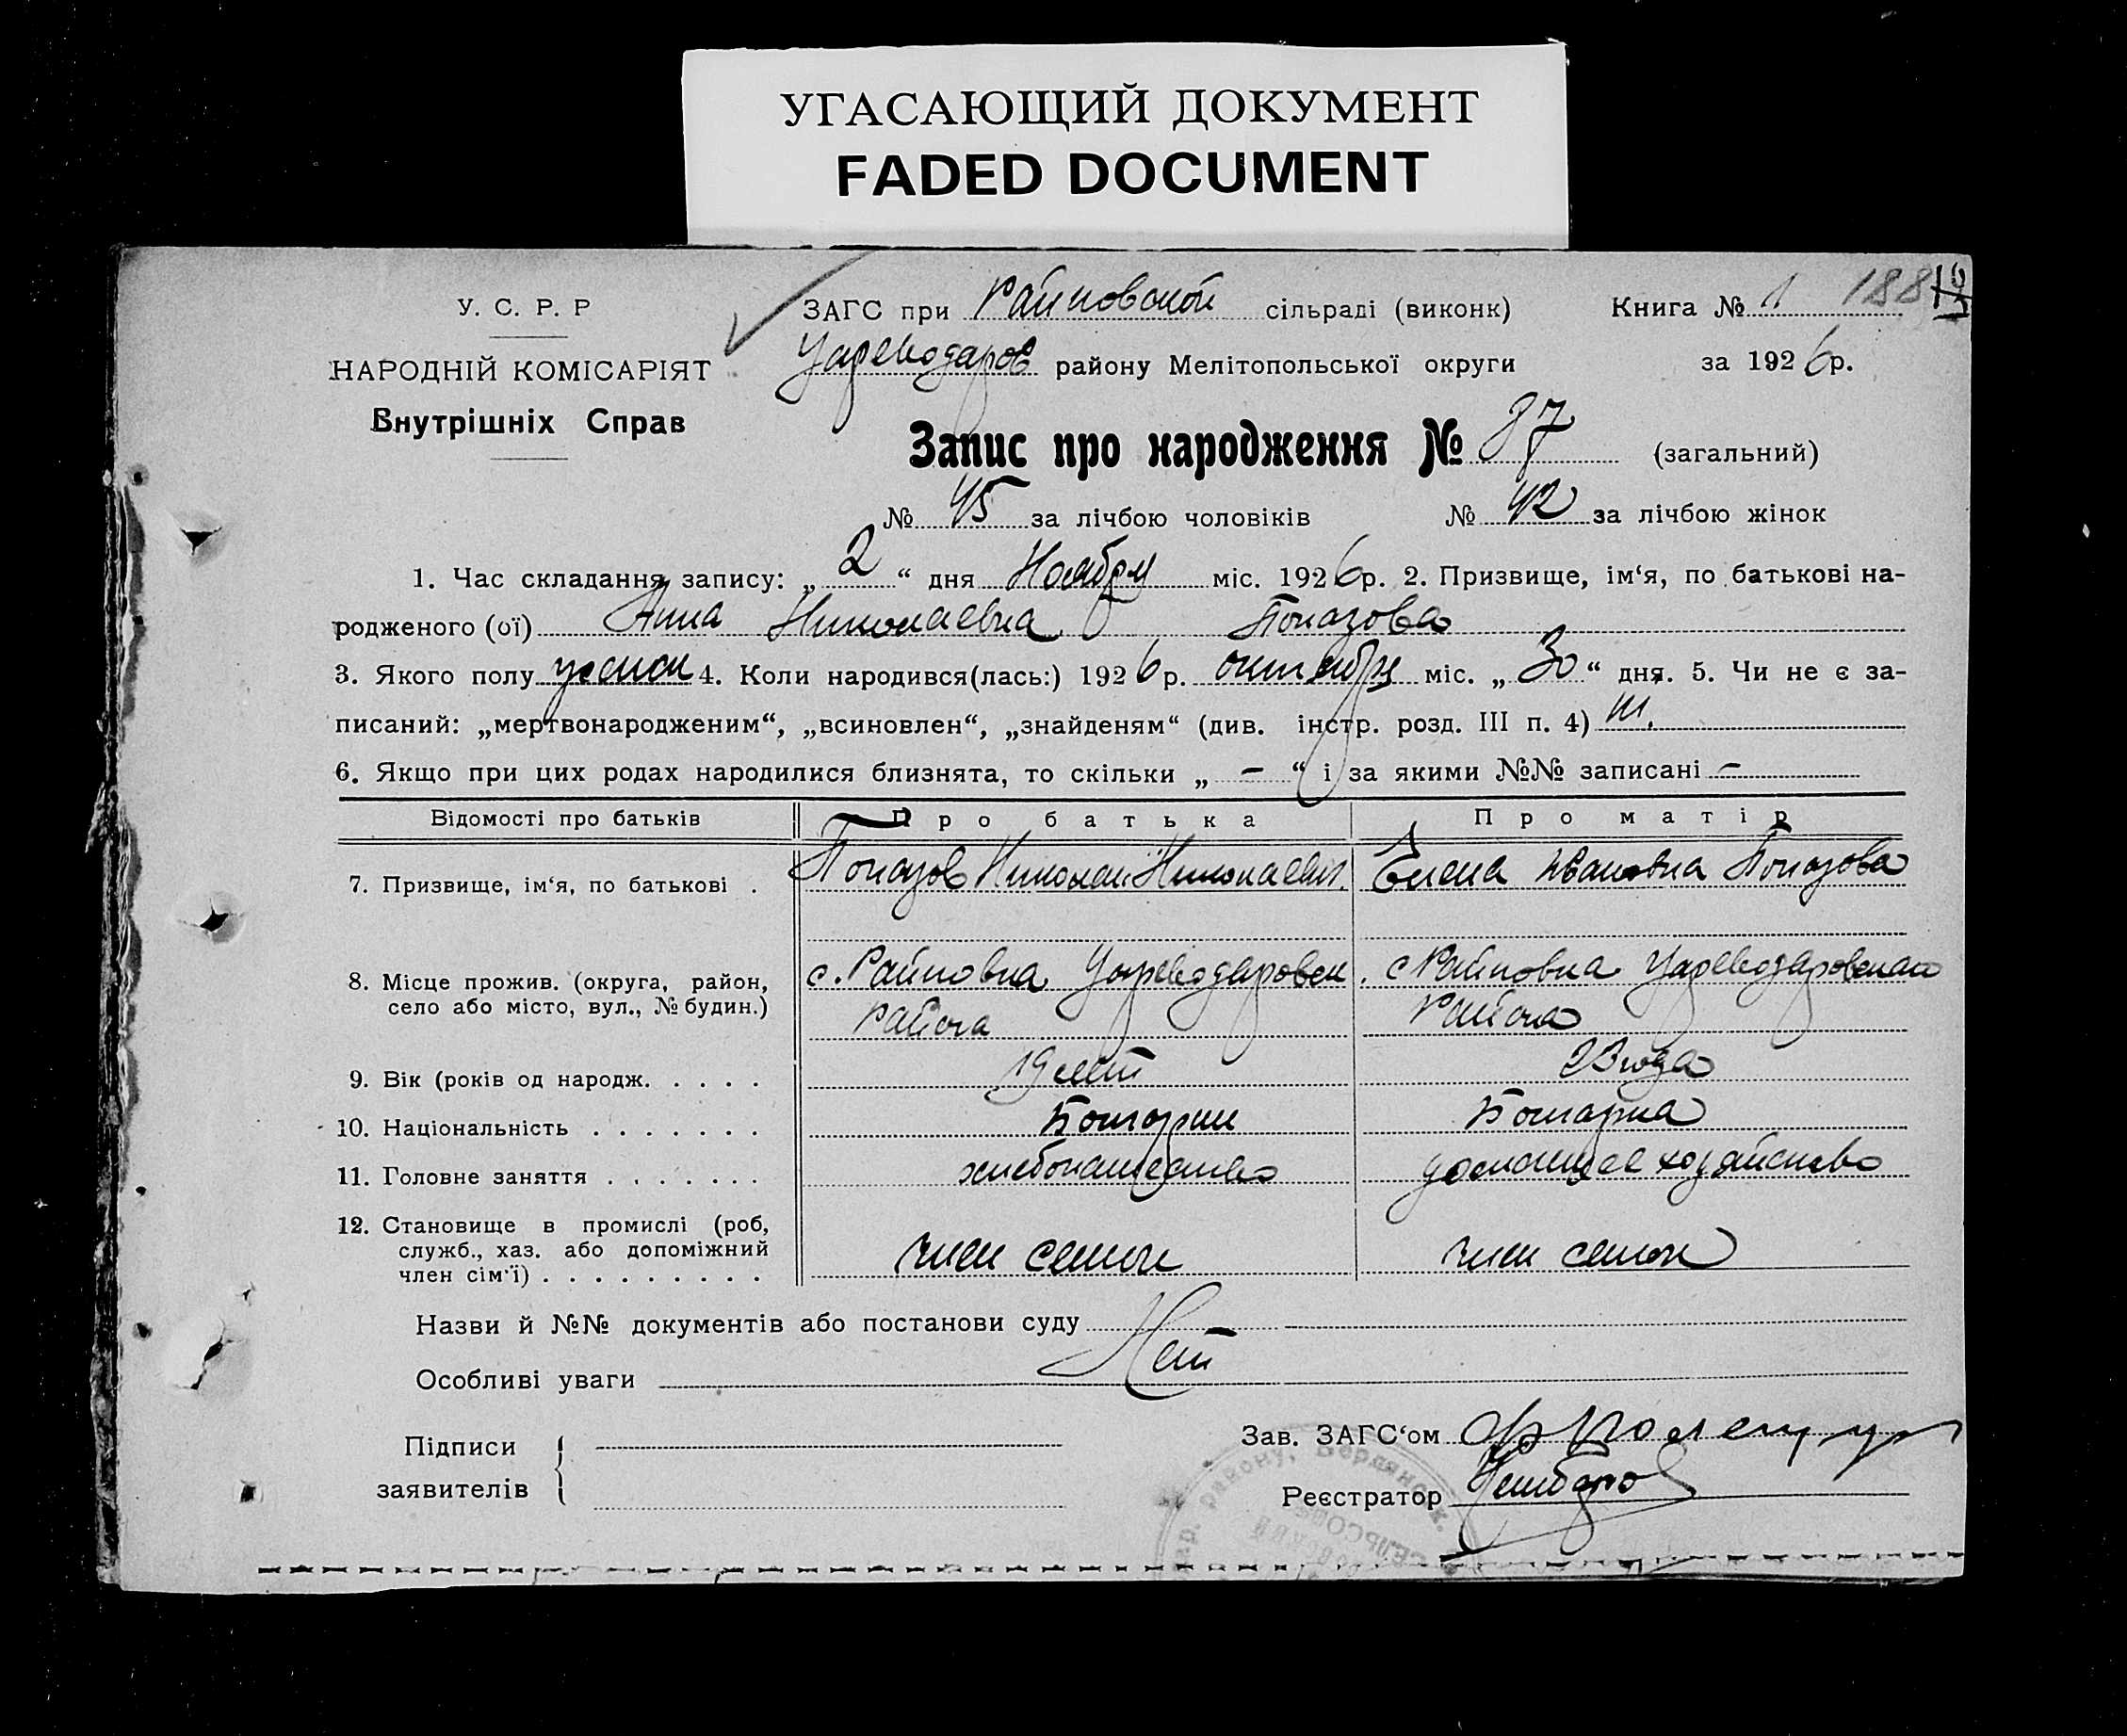 УГАСАЮЩИЙ ДОКУМЕНТ
FADED DOCUMENT
У. С. Р. Р
НАРОДНІЙ КОМІСАРІЯТ
Внутрішніх Справ
ЗАГС при Райновской сільраді (виконк)
Цареводаров району Мелітопольської округи
Книга № 1 188
за 1926 р.
Запис про народження № 87 (загальний)
№ 45 за лічбою чоловіків № 42 за лічбою жінок
1. Час складання запису: „ 2 “ дня Ноября міс. 1926 р. 2. Призвище, ім‘я, по батькові на-
родженого (ої) Анна Николаевна Попазова
3. Якого полу женск 4. Коли народився(лась:) 1926 р. октября міс. „ 30 “ дня. 5. Чи не є за-
писаний: „мертвонародженим“, „всиновлен“, „знайденям“ (див. інстр. розд. III п. 4)
6. Якщо при цих родах народилися близнята, то скільки „ – “ і за якими №№ записані –
Відомості про батьків Про батька Про матір
7. Призвище, ім‘я, по батькові . Попазов Николай Николаевич. Елена Ивановна Попазова
8. Місце прожив. (округа, район, село або місто, вул., № будин.) с. Райновка Цареводаровск. района с Райновка Цареводаровскаго района
9. Вік (років од народж. . . . . 19 лет 23 года
10. Національність . . . . . . . Болгарин Болгарка
11. Головне заняття . . . . . . . хлебопашество домашнее хозяйство
12. Становище в промислі (роб, служб., хаз. або допоміжний член сім‘ї) . . . . . . . . . член семьи член семьи
Назви й №№ документів або постанови суду
Нет
Особливі уваги
Підписи заявителів
Зав. ЗАГС‘ом
Реєстратор